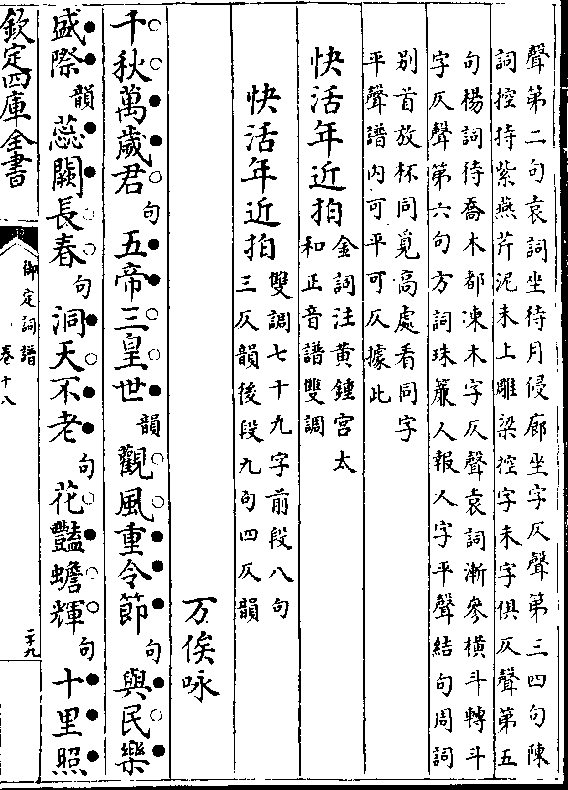 聲第二句袁詞坐待月侵廊坐字仄聲第三四句陳
詞控持紫燕芹泥未上雕梁控字未字俱仄聲第五
句楊詞待喬木都凍木字仄聲袁詞漸參橫斗轉斗
字仄聲第六句方詞珠簾人報人字平聲結句周詞
別首放杯同覓高處看同字
平聲譜內可平可仄據此
快活年近拍 金詞注黃鍾宮太
和正音譜雙調
快活年近拍 雙調七十九字前段八句
三仄韻後段九句四仄韻
万俟咏
千秋萬歲君句五帝三皇世韻觀風重令節句與民樂
盛際韻蕊闕長春句洞天不老句花豔蟾輝句十里照
欽定四庫全書
御定詞譜
卷十八
二十九